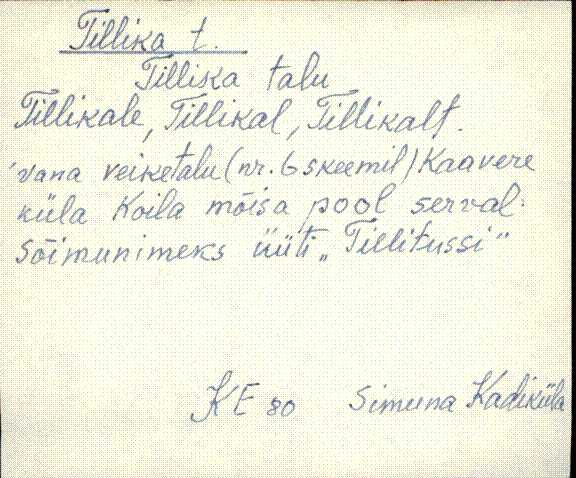 Tillika t.
Tillika talu
Tillikale, Tillikal, Tillikalt.
vana veiketalu (nr. 6 skeemil) Kaavere
küla Koila mõisa pool serval.
Sõimunimeks üüti „Tillitussi"
KE 80 Simuna Kadiküla